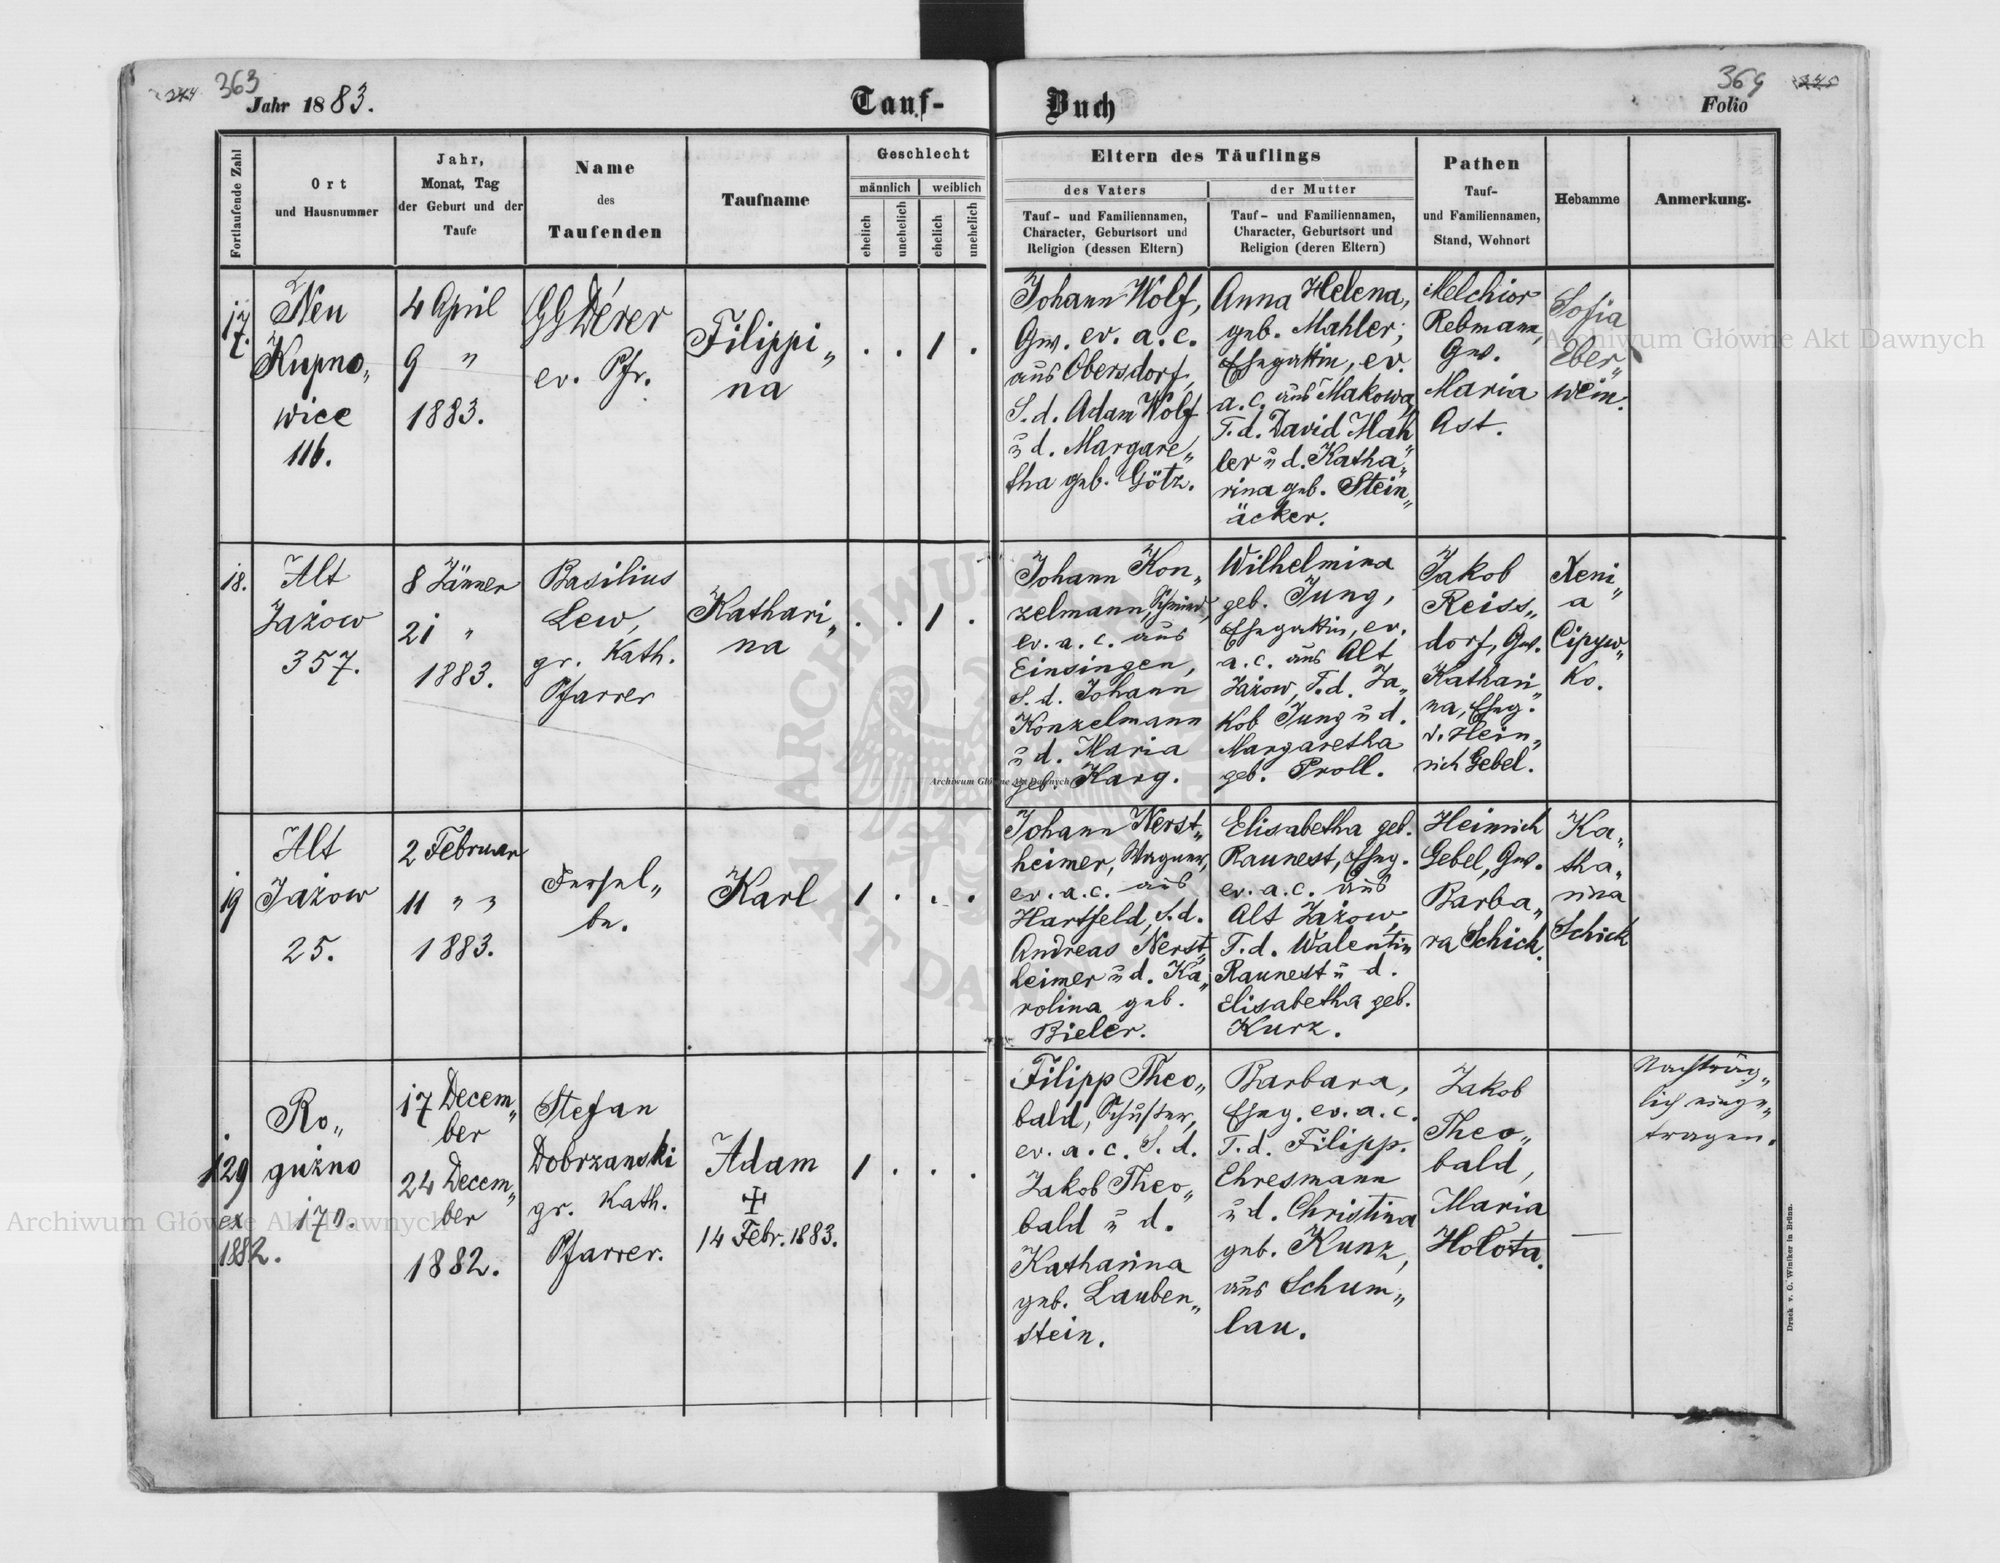 363
Jahr 1883.
Tauf-
Buch
369
Folio
Fortlaufende Zahl
Ort
und Hausnummer
Jahr,
Monat, Tag
der Geburt und der
Taufe
Name
des
Taufenden
Taufname
Geschlecht
männlich
weiblich
ehelich
unehelich
ehelich
unehelich
Eltern des Täuflings
des Vaters
Tauf- und Familiennamen,
Character, Geburtsort und
Religion (dessen Eltern)
der Mutter
Tauf- und Familiennamen,
Character, Geburtsort und
Religion (deren Eltern)
Pathen
Tauf-
und Familiennamen,
Stand, Wohnort
Hebamme
Anmerkung.
17.
Neu
Kupno„
wice
116.
4 April
9 "
1883.
GGDérer
ev. Pfr.
Filippi„
na
. . 1 .
Johann Wolf,
Gw. ev. a. c.
aus Obersdorf,
S. d. Adam Wolf
u d. Margare„
tha geb. Götz.
Anna Helena,
geb. Mahler;
Ehegattin, ev.
a. c. aus Makowa,
T. d. David Mah„
ler u d. Katha„
rina geb. Stein„
äcker.
Melchior
Rebmann,
Gw.
Maria
Ast.
Sofia
Eber„
wein.
18.
Alt
Jażow
357.
8 Jänner
21 "
1883.
Basilius
Lew,
gr. Kath.
Pfarrer
Kathari„
na
. . 1 .
Johann Kon„
zelmann, Schmied,
ev. a. c. aus
Einsingen,
S. d. Johann
Konzelmann
u d. Maria
geb. Karg.
Wilhelmina
geb. Jung,
Ehegattin, ev.
a. c. aus Alt
Jażow, T. d. Ja„
kob Jung u d.
Margaretha
geb. Proll.
Jakob
Reiss„
dorf, Gw.
Kathari„
na, Eheg.
d. Hein„
rich Gebel.
Xeni„
a
Cipyw„
ko.
19
Alt
Jażow
25.
2 Februar
11 " "
1883.
Dersel„
be.
Karl
1 . . .
Johann Nerst„
heimer, Wagner,
ev. a. c. aus
Hartfeld, S. d.
Andreas Nerst„
heimer u d. Ka„
rolina geb.
Bieler.
Elisabetha geb.
Raunest, Eheg.
ev. a. c. aus
Alt Jażow,
T. d. Walentin
Raunest u d.
Elisabetha geb.
Kurz.
Heinrich
Gebel, Gw.
Barba„
ra Schick.
Ka„
tha„
rina
Schick
129
ex
1882.
Ro„
guźno
170.
17 Decem„
ber
24 Decem„
ber
1882.
Stefan
Dobrzanski
gr. Kath.
Pfarrer.
Adam
✝
14 Febr. 1883.
1 . . .
Filipp Theo„
bald, Schuster,
ev. a. c. S. d.
Jakob Theo„
bald u d.
Katharina
geb. Lauben„
stein.
Barbara,
Eheg. ev. a. c.
T. d. Filipp.
Ehresmann
u d. Christina
geb. Kunz,
aus Schum„
lau.
Jakob
Theo„
bald,
Maria
Hołota.
—
Nachträg„
lich einge„
tragen.
Druck v. G. Winiker in Brünn.
Archiwum Główne Akt Dawnych
Archiwum Główne Akt Dawnych
Archiwum Główne Akt Dawnych